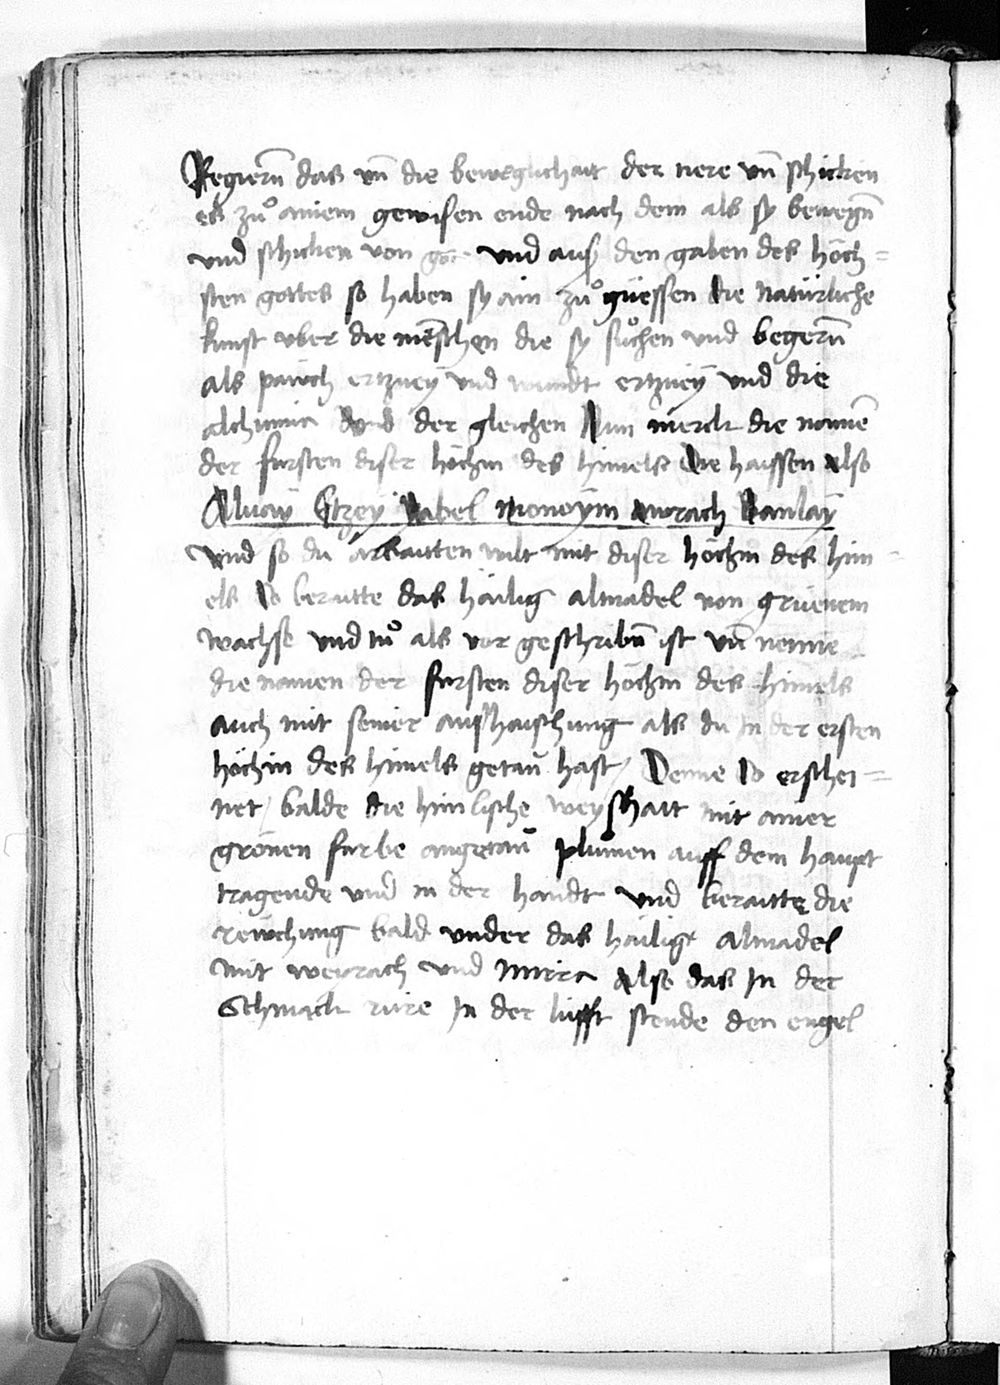 Regiern̄ das vn̄ die beweglichait der nere vn̄ schicken
es zuͦ ainem gewisen ende nach dem als sy bewegn̄
vnd schicken von got vnd auß den gaben des höch=
sten gottes so haben sy ain zuͦ güessen die natürliche
kunst vber die mēschen die sy suͦchen vnd begern̄
als pauch ertzney vnd wundt ertzney vnd die
alchimia vnd der gleichen Nun merck die namē
der fürsten diser höchin des himels die haissen also
Aluay Etzey Rabel Moneym
vnd so du arbaitten wilt mit diser höchin des him=
els so beraitte das hailig almadel von grüenem
wachse vnd tuͦ als vor geschribn̄ ist vn̄ nenne
die namen der fürsten diser höchin des himels
auch mit seiner aufhaischung als du In der ersten
höchin des himels getan̄ hast / Denne so erschei=
net / balde die himlische weyßhait mit ainer
grönen farbe angetan̄ pluͦmen auff dem haupt
tragende vnd in der handt vnd beraitte die
reüchung bald vnder das hailige almadel
mit weyrach vnd mirra also das In der
Schmack rüre In der lüfft stende den engel